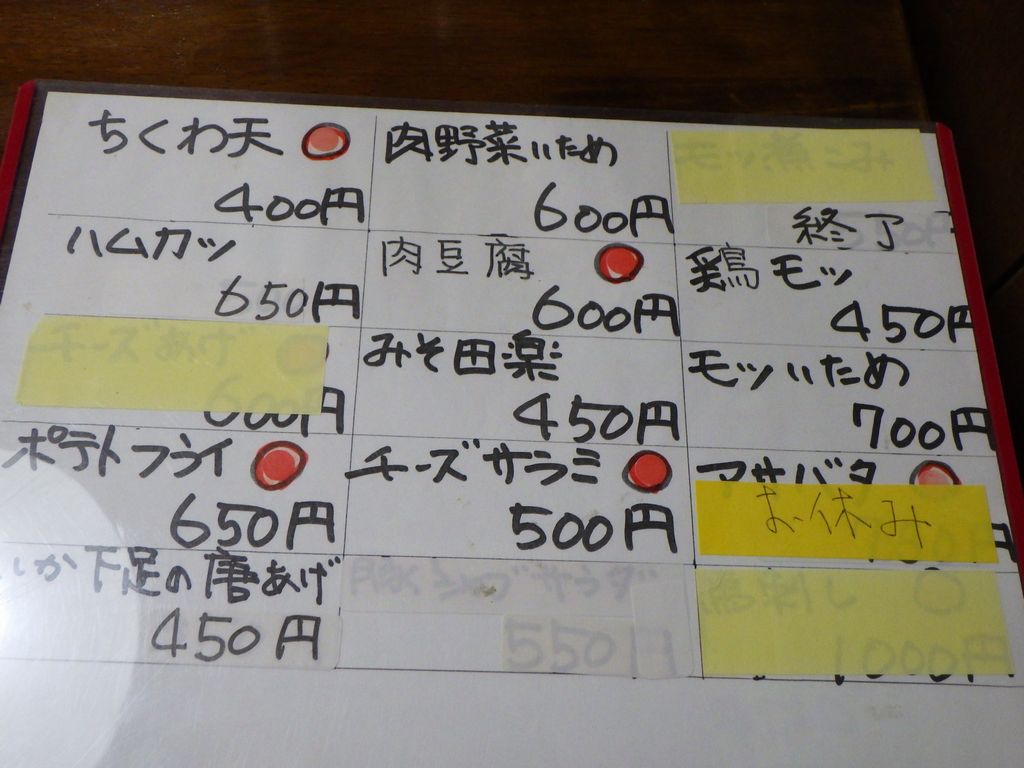 ちくわ天
400円
肉野菜いため
600円
モツ煮こみ
終了
ハムカツ
650円
肉豆腐
600円
鶏モツ
450円
チーズあげ
600円
みそ田楽
450円
モツいため
700円
ポテトフライ
650円
チーズサラミ
500円
アサバタ
お休み
いか下足の唐あげ
450円
豚しゃぶサラダ
550円
刺し
1000円